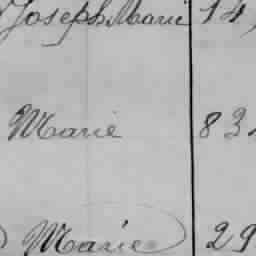 Joseph Marie 14
Marie 83
Marie 29